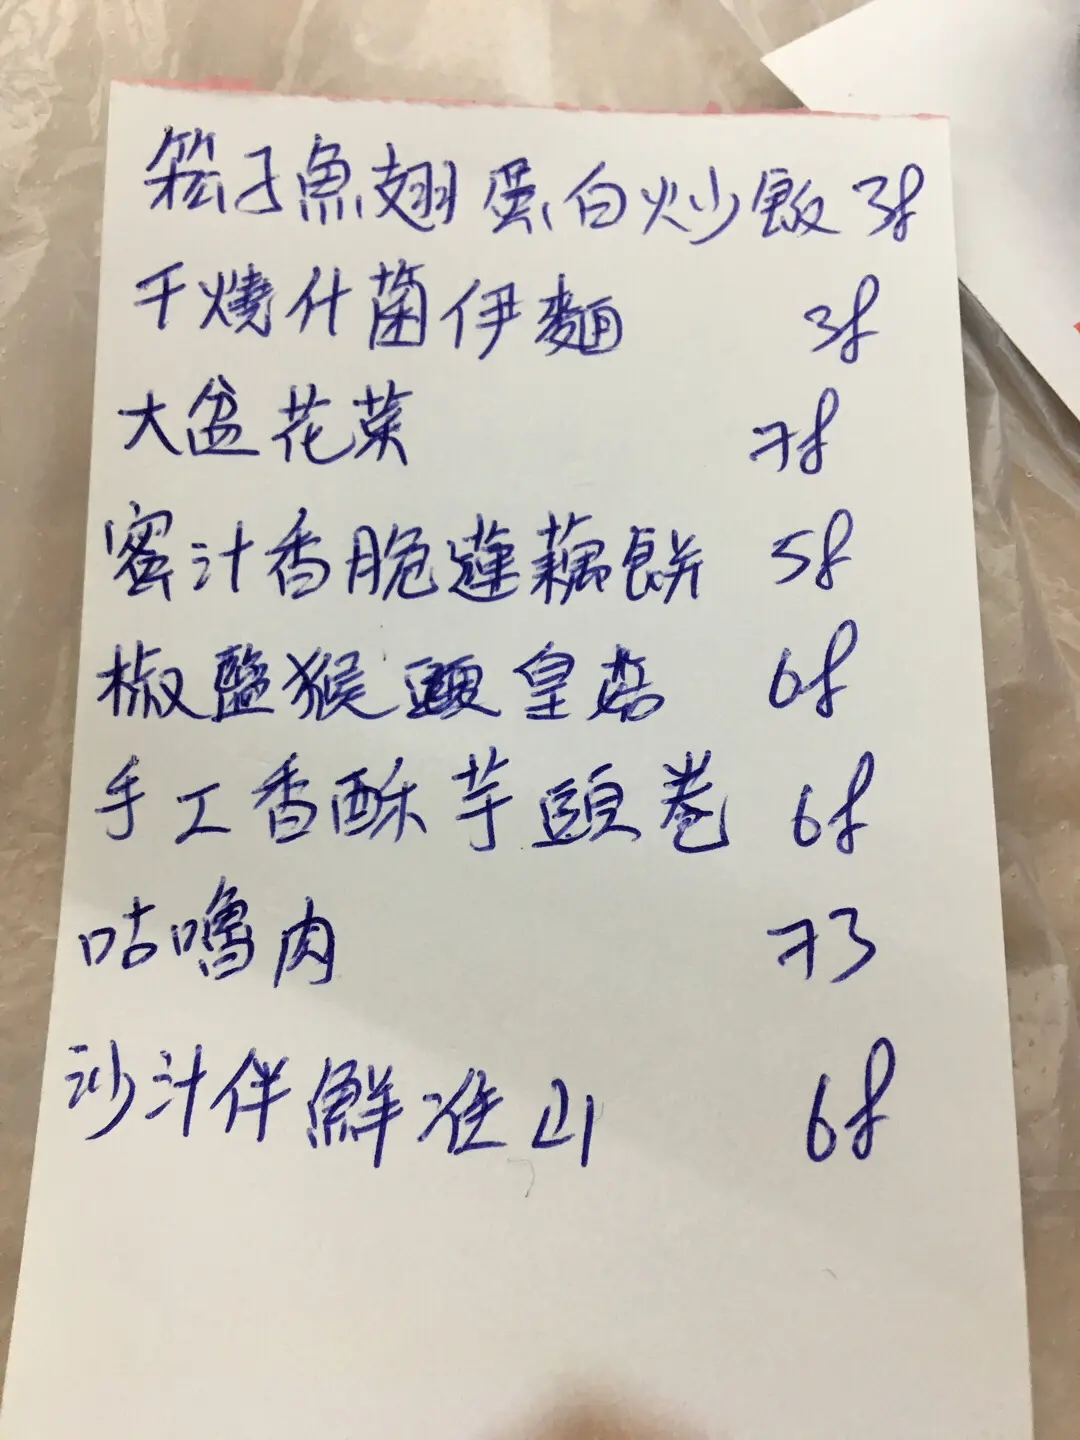 子魚翅蛋白炒飯 38
干燒什菌伊麵 38
大盆花菜 78
蜜汁香脆蓮藕餅 58
椒鹽猴頭皇菇 68
手工香酥芋頭卷 68
咕嚕肉 73
沙汁伴鮮准山 68